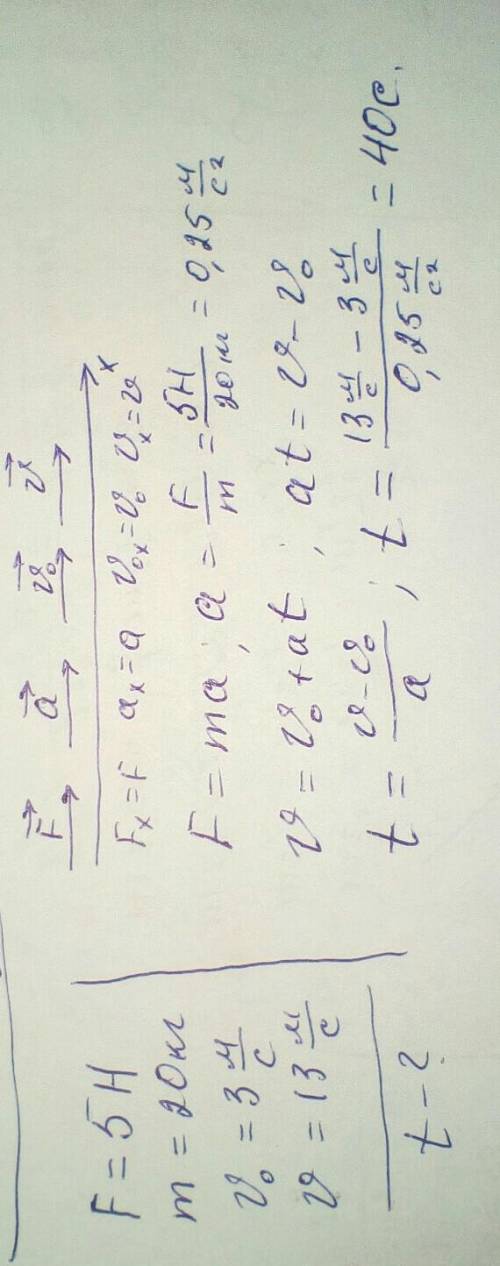 F = 5 Н
m = 20 кг
υ₀ = 3 м/с
υ = 13 м/с
t - ?
F⃗ a⃗ υ⃗₀ υ⃗
x
Fₓ = F aₓ = a υ₀ₓ = υ₀ υₓ = υ
F = ma ; a = F/m = 5Н/20кг = 0,25 м/с²
υ = υ₀ + at ; at = υ - υ₀
t = (υ - υ₀)/a ; t = (13 м/с - 3 м/с)/(0,25 м/с²) = 40с.